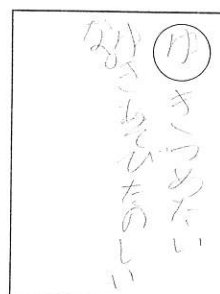 ゆきつめたい
ゆきあそびたのしい
な。